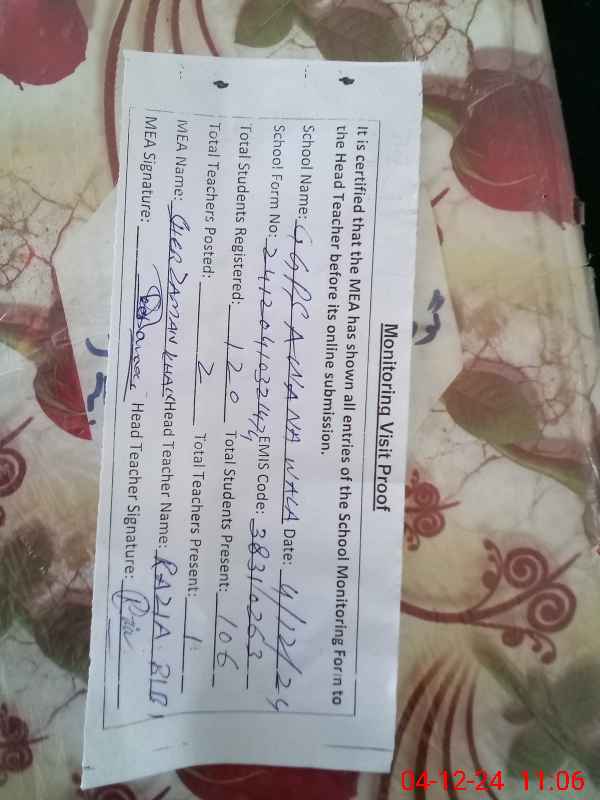 Monitoring Visit Proof
It is certified that the MEA has shown all entries of the School Monitoring Form to
the Head Teacher before its online submission.
School Name: WALA Date: 4/12/24
School Form No: EMIS Code: 38310263
Total Students Registered: 120 Total Students Present: 106
Total Teachers Posted: 2 Total Teachers Present: 1
MEA Name: SHER ZAMAN KHAN Head Teacher Name: RAZIA BIBI
MEA Signature: Head Teacher Signature:
04-12-24 11:06